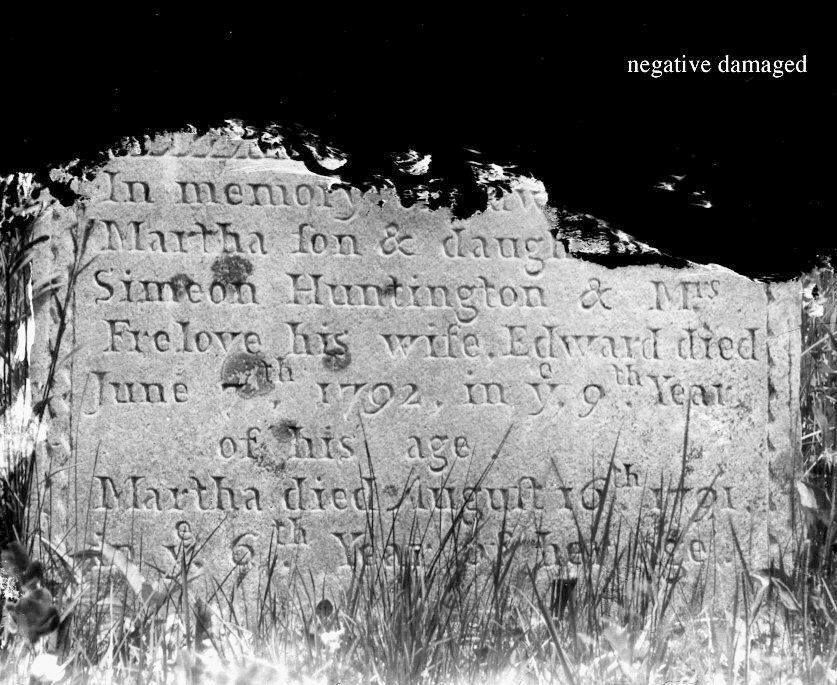 negative damaged
In memory
Martha ſon & daugh
Simeon Huntington & Mrs
Frelove his wife. Edward died
June 7th, 1792, in ye. 9th. Year
of his age.
Martha died Auguſt 16th. 1791
in ye. 6th. Year of her age.